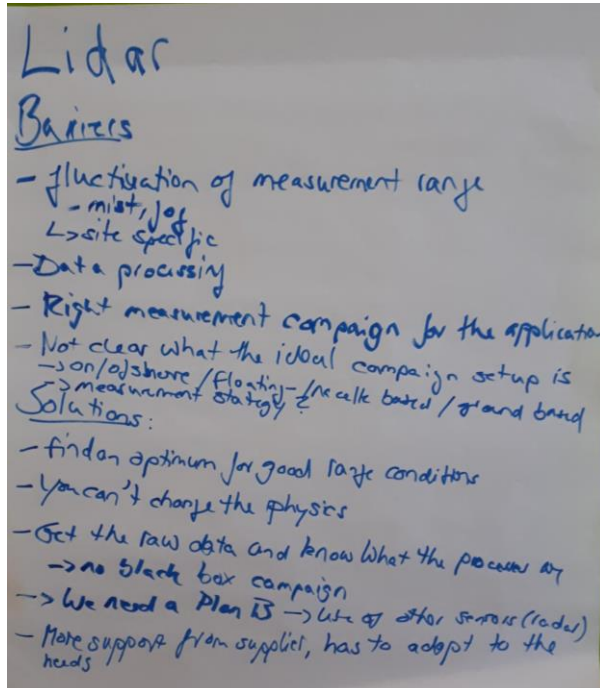 Lidar
Barriers
- fluctiyation of measurement range
- mist, fog
↳ site specific
- Data processing
- Right measurement campaign for the application
- Not clear what the ideal campaign setup is
→ on/offshore / floating- / necelle based / ground based
→ measurement stategy?
Solutions:
- find an optimum for good range conditions
- You can't change the physics
- Get the raw data and know what the processes are
→ no black box campaign
-> We need a Plan B → use of other sensors (radar)
- More support from supplier, has to adapt to the
needs